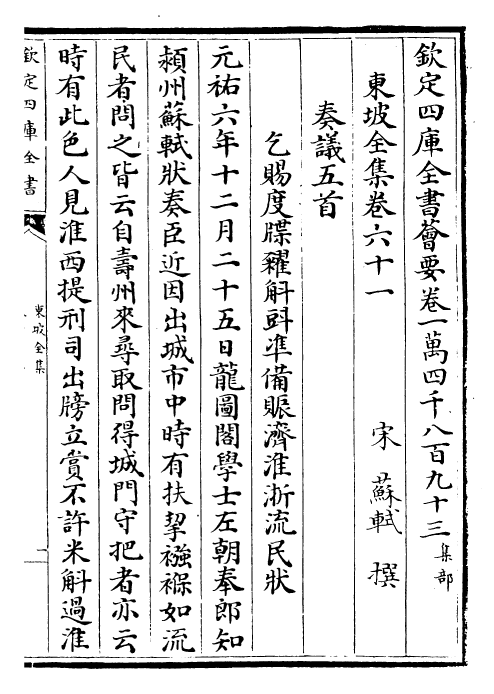 欽定四庫全書薈要卷一萬四千八百九十三 集部
東坡全集卷六十一 宋 蘇軾 撰
奏議五首
乞賜度牒糴斛㪷準備賑濟淮浙流民狀
元祐六年十二月二十五日龍圖閣學士左朝奉郎知
潁州蘇軾狀奏臣近因出城市中時有扶挈襁褓如流
民者問之皆云自壽州來尋取問得城門守把者亦云
時有此色人見淮西提刑司出牓立賞不許米斛過淮
欽定四庫全書
東坡全集
一